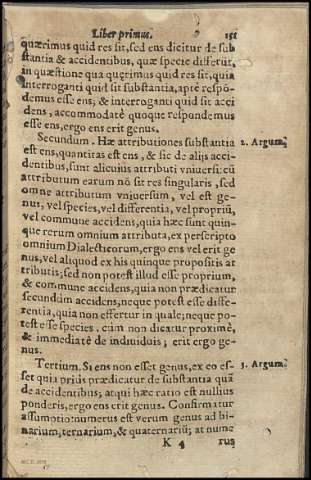 Liber primus. 151
quærimus quid res sit, sed ens dicitur de sub
stantia & accidentibus, quæ specie differũt,
in quæstione qua quęrimus quid res sit, quia
interroganti quid sit substantia, aptè respõ-
demus esse ens; & interroganti quid sit acci
dens, accommodatè quoque respondemus
esse ens, ergo ens erit genus.
Secundum. Hæ attributiones substantia 2. Argum.
est ens, quantitas est ens, & sic de alijs acci-
dentibus, sunt alicuius attributi vniuersi: cũ
attributum earum nõ sit res singularis, sed
omne attributum vniuersum, vel est ge-
nus, vel species, vel differentia, vel propriũ,
vel commune accidens, quia hæc sunt quin-
que rerum omnium attributa, ex perscripto
omnium Dialecticorum, ergo ens vel erit ge
nus, vel aliquod ex his quinque propositis at
tributis; sed non potest illud esse proprium,
& commune accidens, quia non prædicatur
secundùm accidens, neque potest esse diffe-
rentia, quia non effertur in quale; neque po-
test esse species, cùm non dicatur proximè,
& immediatè de indiuiduis; erit ergo ge-
nus.
Tertium. Si ens non esset genus, ex eo es- 3. Argum.
set quia priùs prædicatur de substantia quã
de accidentibus; atqui hæc ratio est nullius
ponderis, ergo ens erit genus. Confirmatur
assumptio: numerus est verum genus ad bi-
narium, ternarium, & quaternariũ; at nume
K 4 rus